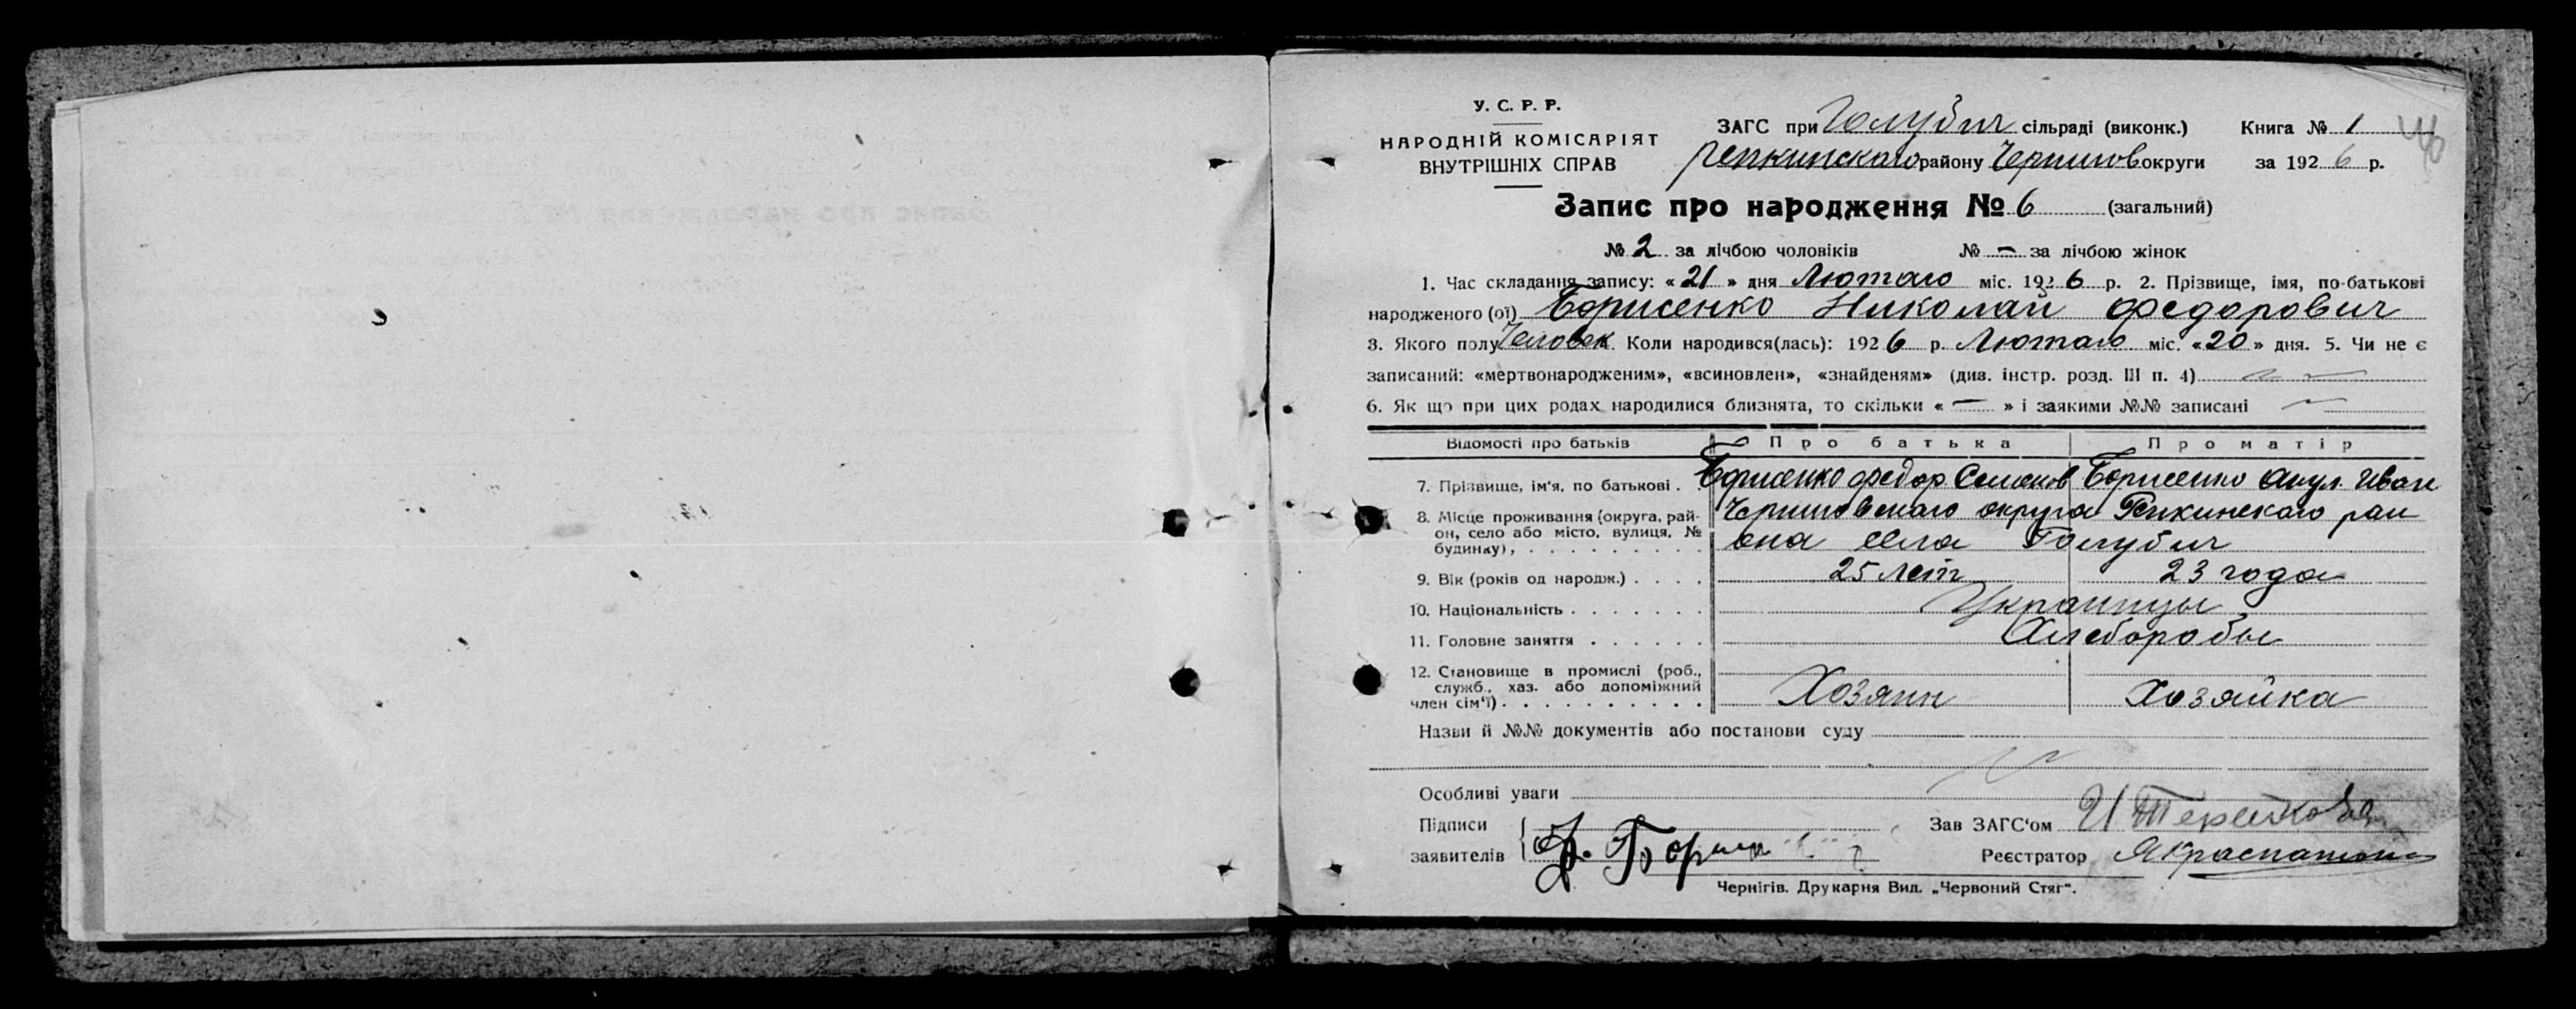 У. С. Р. Р.
НАРОДНІЙ КОМІСАРІЯТ
ВНУТРІШНІХ СПРАВ
ЗАГС при Голубич сільраді (виконк.) Книга № 1 40
Репкинскаго району Чернигов округи за 1926 р.
Запис про народження № 6 (загальний)
№ 2 за лічбою чоловіків № — за лічбою жінок
1. Час складання запису: «21» дня Лютаго міс. 1926 р. 2. Прізвище, імя, по-батькові
народженого (ої) Борисенко Николай Федорович
3. Якого полу Человек. Коли народився(лась): 1926 р. Лютаго міс. «20» дня. 5. Чи не є
записаний: «мертвонародженим», «всиновлен», «знайденям» (див. інстр. розд. III п. 4)
6. Як що при цих родах народилися близнята, то скільки « — » і заякими №№ записані
Відомості про батьків Про батька Про матір
7. Прізвище, ім'я, по батькові . Борисенко Федор Семенов Борисенко Акул. Иван
8. Місце проживання (округа, рай- Черниговскаго округа Репкинскаго раи
он, село або місто, вулиця, № она села Голубич
будинку), . . . . . . . . . .
9. Вік (років од народж.) . . . . 25 лет 23 года
10. Національність . . . . . . . Украинцы
11. Головне заняття . . . . . . Хлеборобы
12. Становище в промислі (роб.,
служб., хаз. або допоміжний Хозяин Хозяйка
член сім'ї) . . . . . . . . . .
Назви й №№ документів або постанови суду
Особливі уваги
Підписи Зав ЗАГС'ом И
заявителів Ф. Реєстратор
Чернігів. Друкарня Вид. „Червоний Стяг".